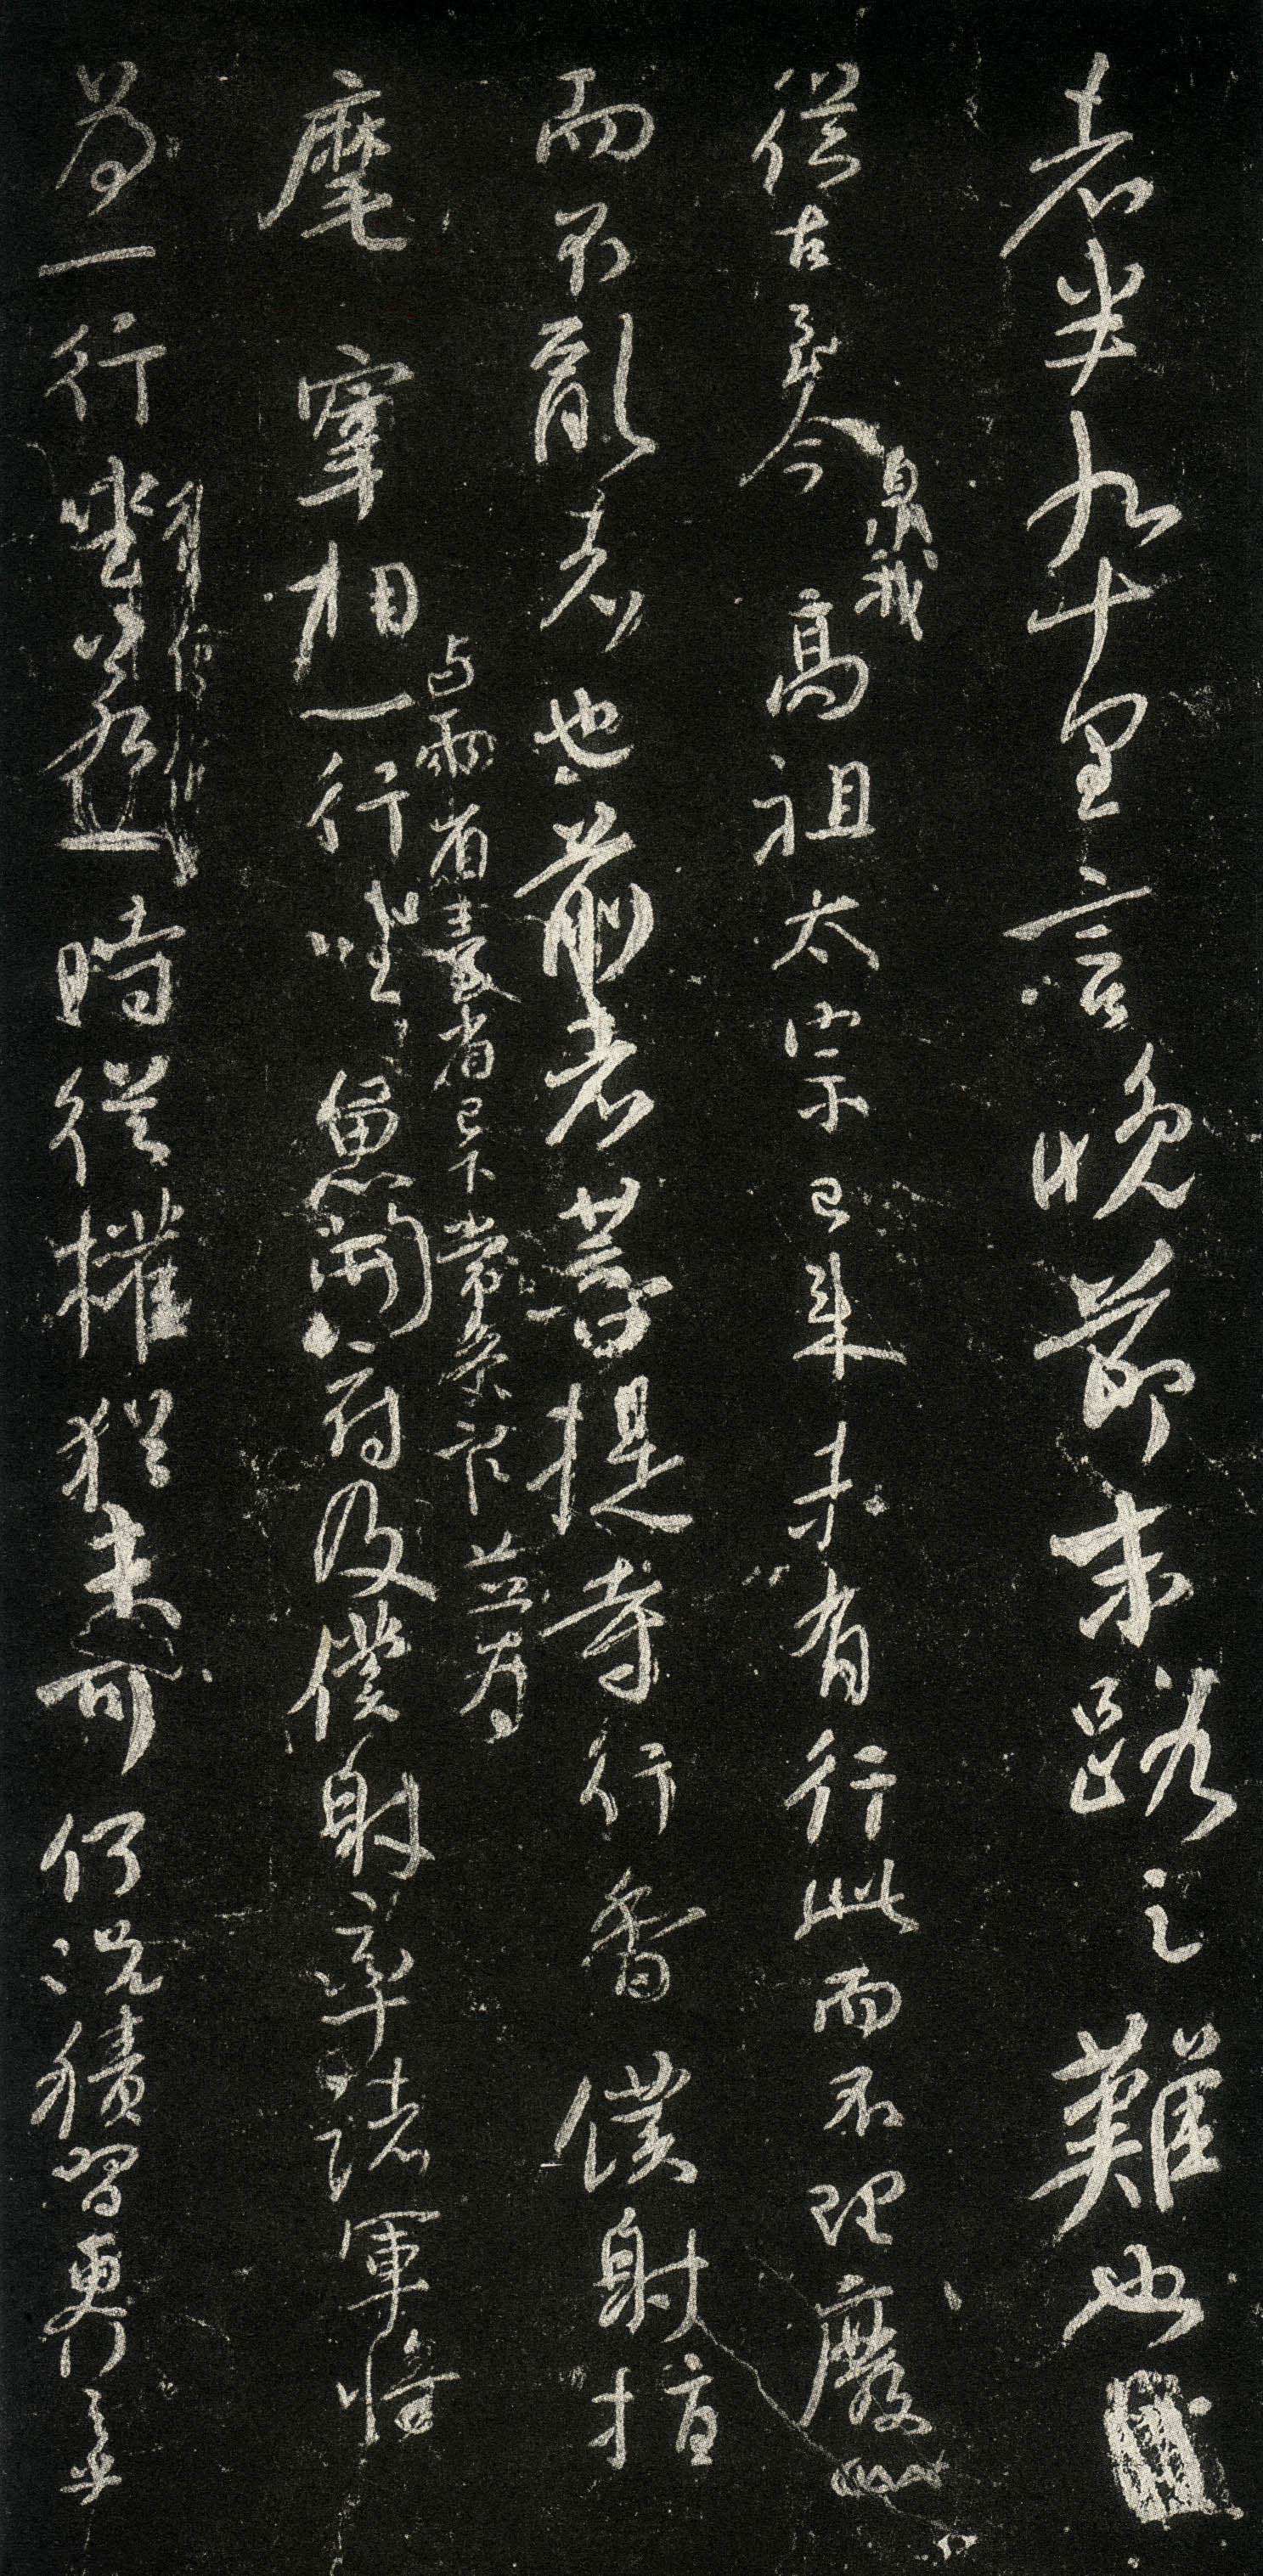 者半九十里言晚節末路之難也
從古至今臮我高祖太宗已來未有行此而不理廢此
而不亂者也前者菩提寺行香僕射指
麾宰相与兩省臺省已下常參官並為一行坐魚開府及僕射率諸軍將
為一行坐一時從權猶未可何況積習更行之乎